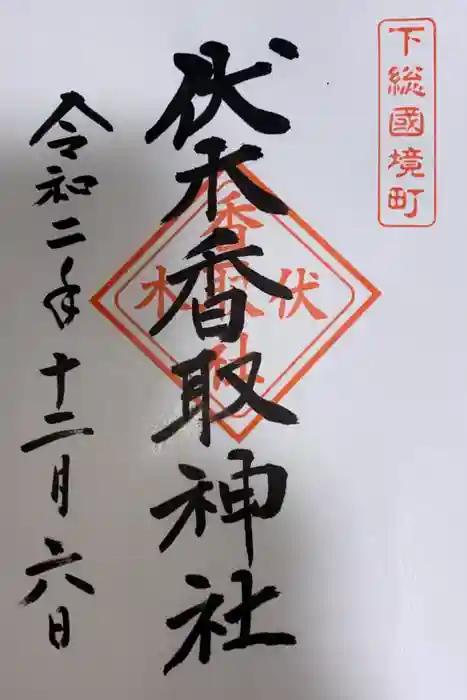 下総國境町
伏木香取神社
伏木
香取社
令和二年十二月六日